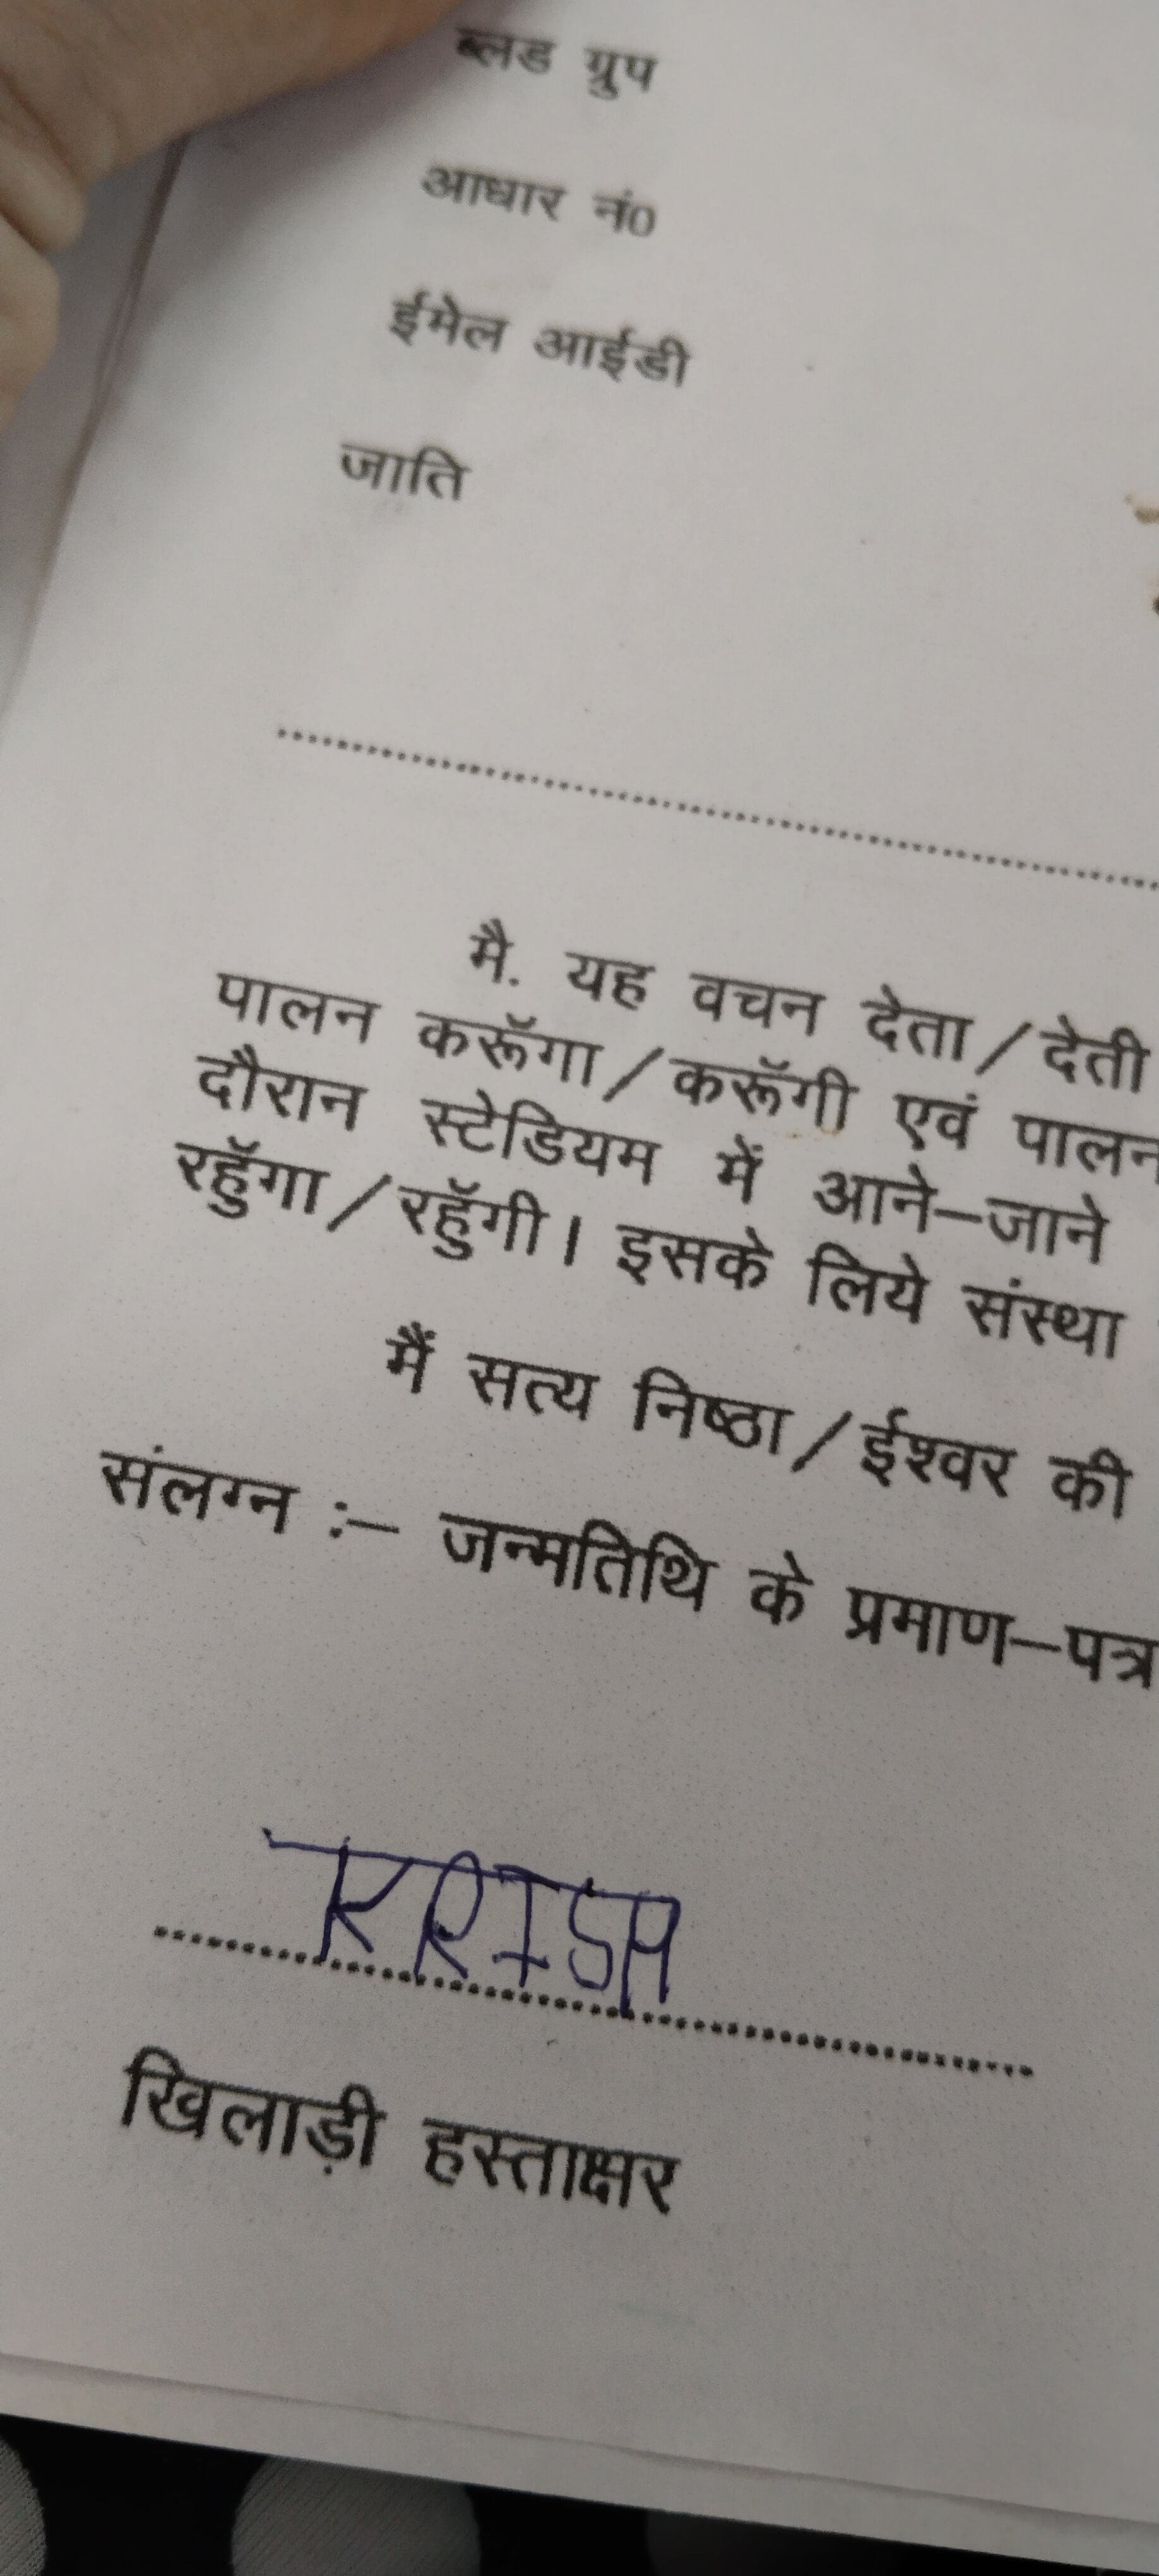 ब्लड ग्रुप
आधार नं0
ईमेल आईडी
जाति
मै. यह वचन देता/देती
पालन करूॅगा/करूॅगी एवं पालन
दौरान स्टेडियम में आने–जाने
रहुॅगा/रहुॅगी। इसके लिये संस्था
मैं सत्य निष्ठा/ईश्वर की
संलग्न :– जन्मतिथि के प्रमाण–पत्र
KRISH
खिलाड़ी हस्ताक्षर